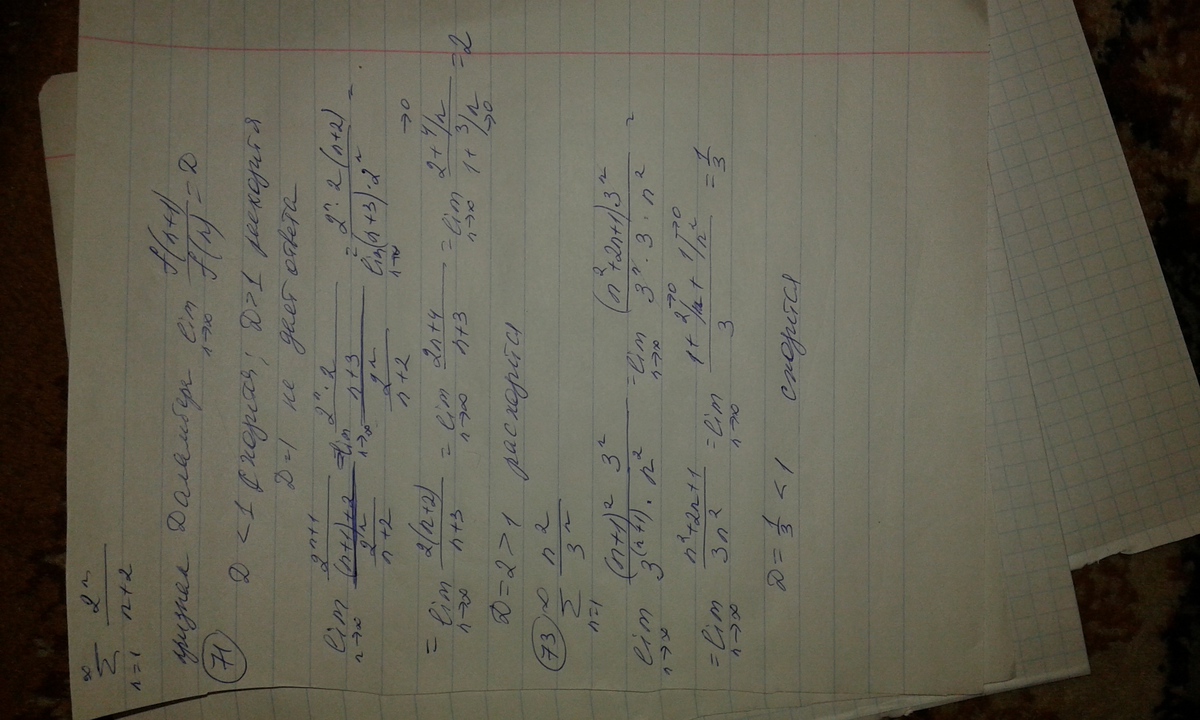 ∞ ∑ n=1 2ⁿ / (n+2)
признак Даламбера lim n→∞ f(n+1) / f(n) = D
71 D < 1 сходится; D > 1 расходится
D = 1 не дает ответа
lim n→∞ (2ⁿ⁺¹ / ((n+1)+2)) / (2ⁿ / (n+2)) = lim n→∞ (2ⁿ·2 / (n+3)) / (2ⁿ / (n+2)) = lim n→∞ 2ⁿ·2(n+2) / ((n+3)·2ⁿ) =
= lim n→∞ 2(n+2) / (n+3) = lim n→∞ (2n+4) / (n+3) = lim n→∞ (2 + 4/n →0) / (1 + 3/n →0) = 2
D = 2 > 1 расходится
73 ∞ ∑ n=1 n² / 3ⁿ
lim n→∞ (n+1)² 3ⁿ / (3⁽ⁿ⁺¹⁾ · n²) = lim n→∞ (n²+2n+1) 3ⁿ / (3ⁿ · 3 · n²) =
= lim n→∞ (n²+2n+1) / 3n² = lim n→∞ (1 + 2/n →0 + 1/n² →0) / 3 = 1/3
D = 1/3 < 1 сходится